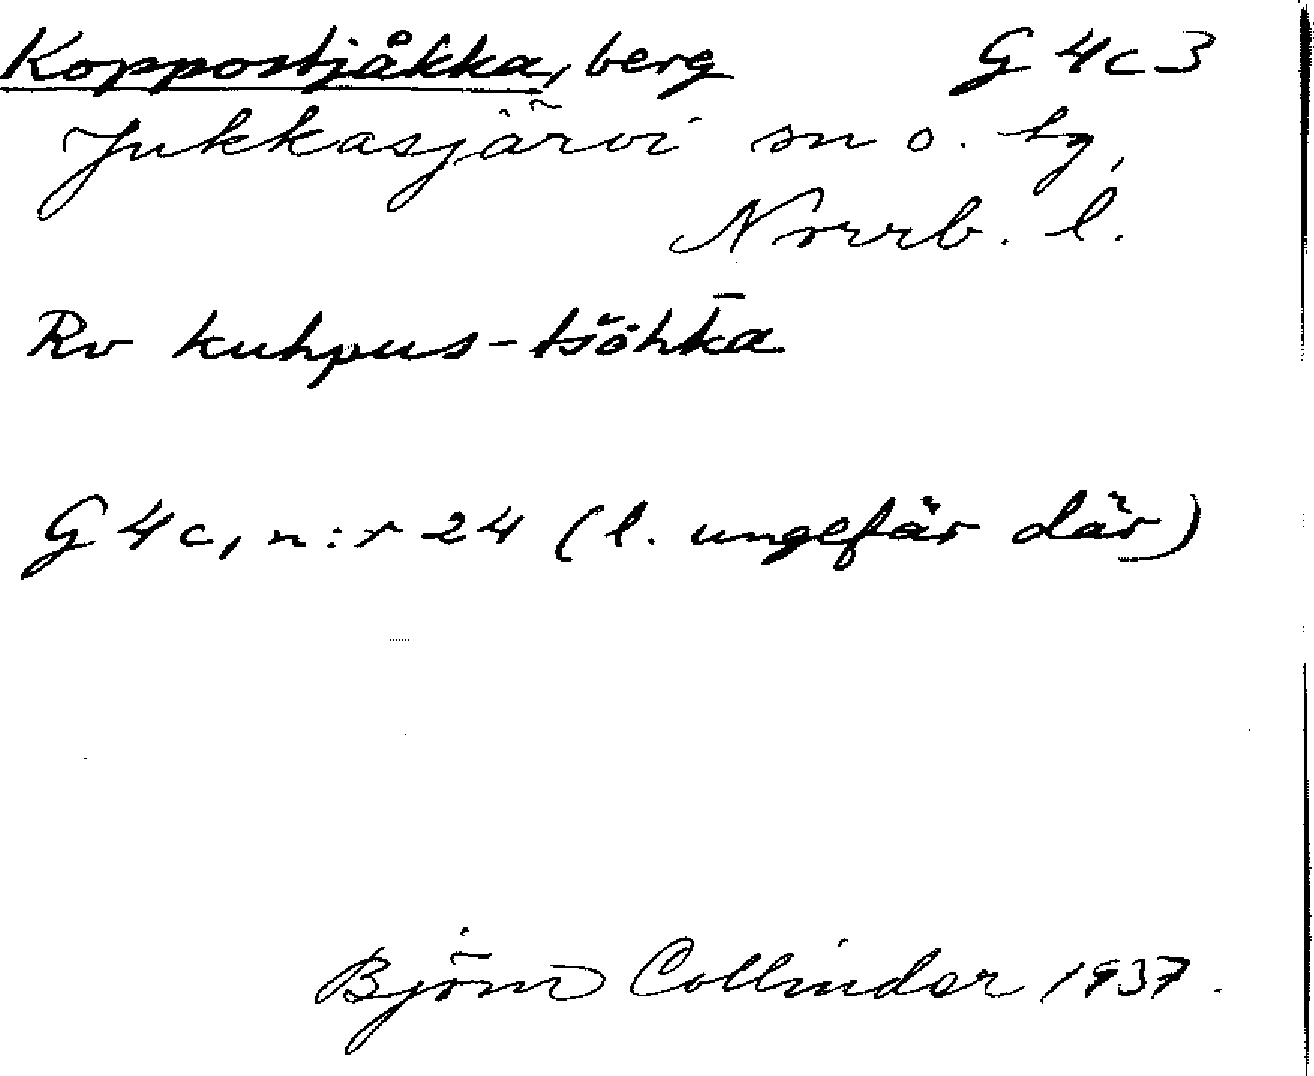 Koppostjåkka, berg G 4c3
Jukkasjärvi sn o. tg,
Norrb. l.
Rv kuhpus-tšŏhk̄a
G 4c, n:r 24 (l. ungefär där)
Björn Collinder 1937.